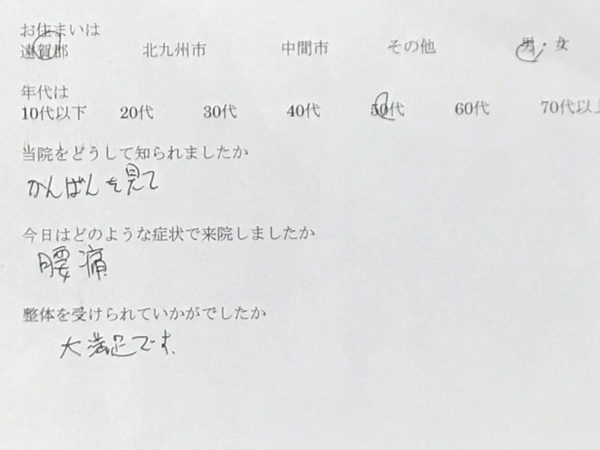 お住まいは
遠賀郡 北九州市 中間市 その他 男・女
年代は
10代以下 20代 30代 40代 50代 60代 70代以上
当院をどうして知られましたか
かんばんを見て
今日はどのような症状で来院しましたか
腰痛
整体を受けられていかがでしたか
大満足です